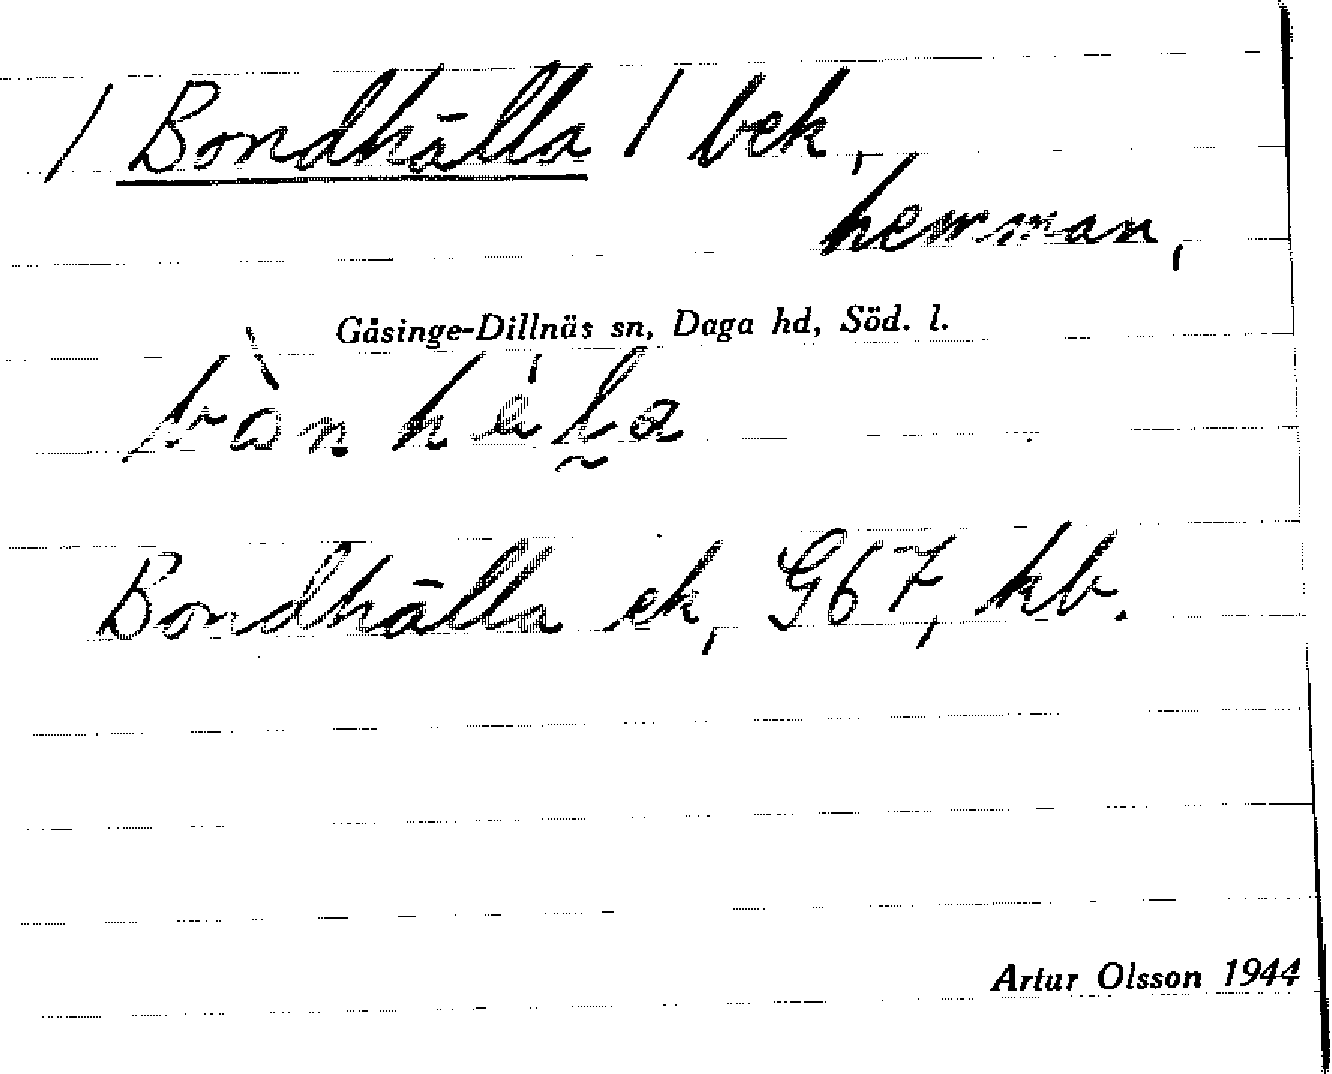 / Bondhälla / bek,
hemman,
Gåsinge-Dillnäs sn, Daga hd, Söd. l.
Bondhälla ek, G67, kb.
Artur Olsson 1944